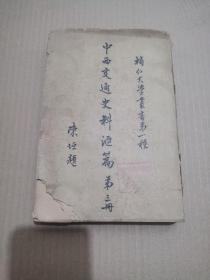 輔仁大學叢書第一種
中西交通史料滙篇 第三冊
陳垣題